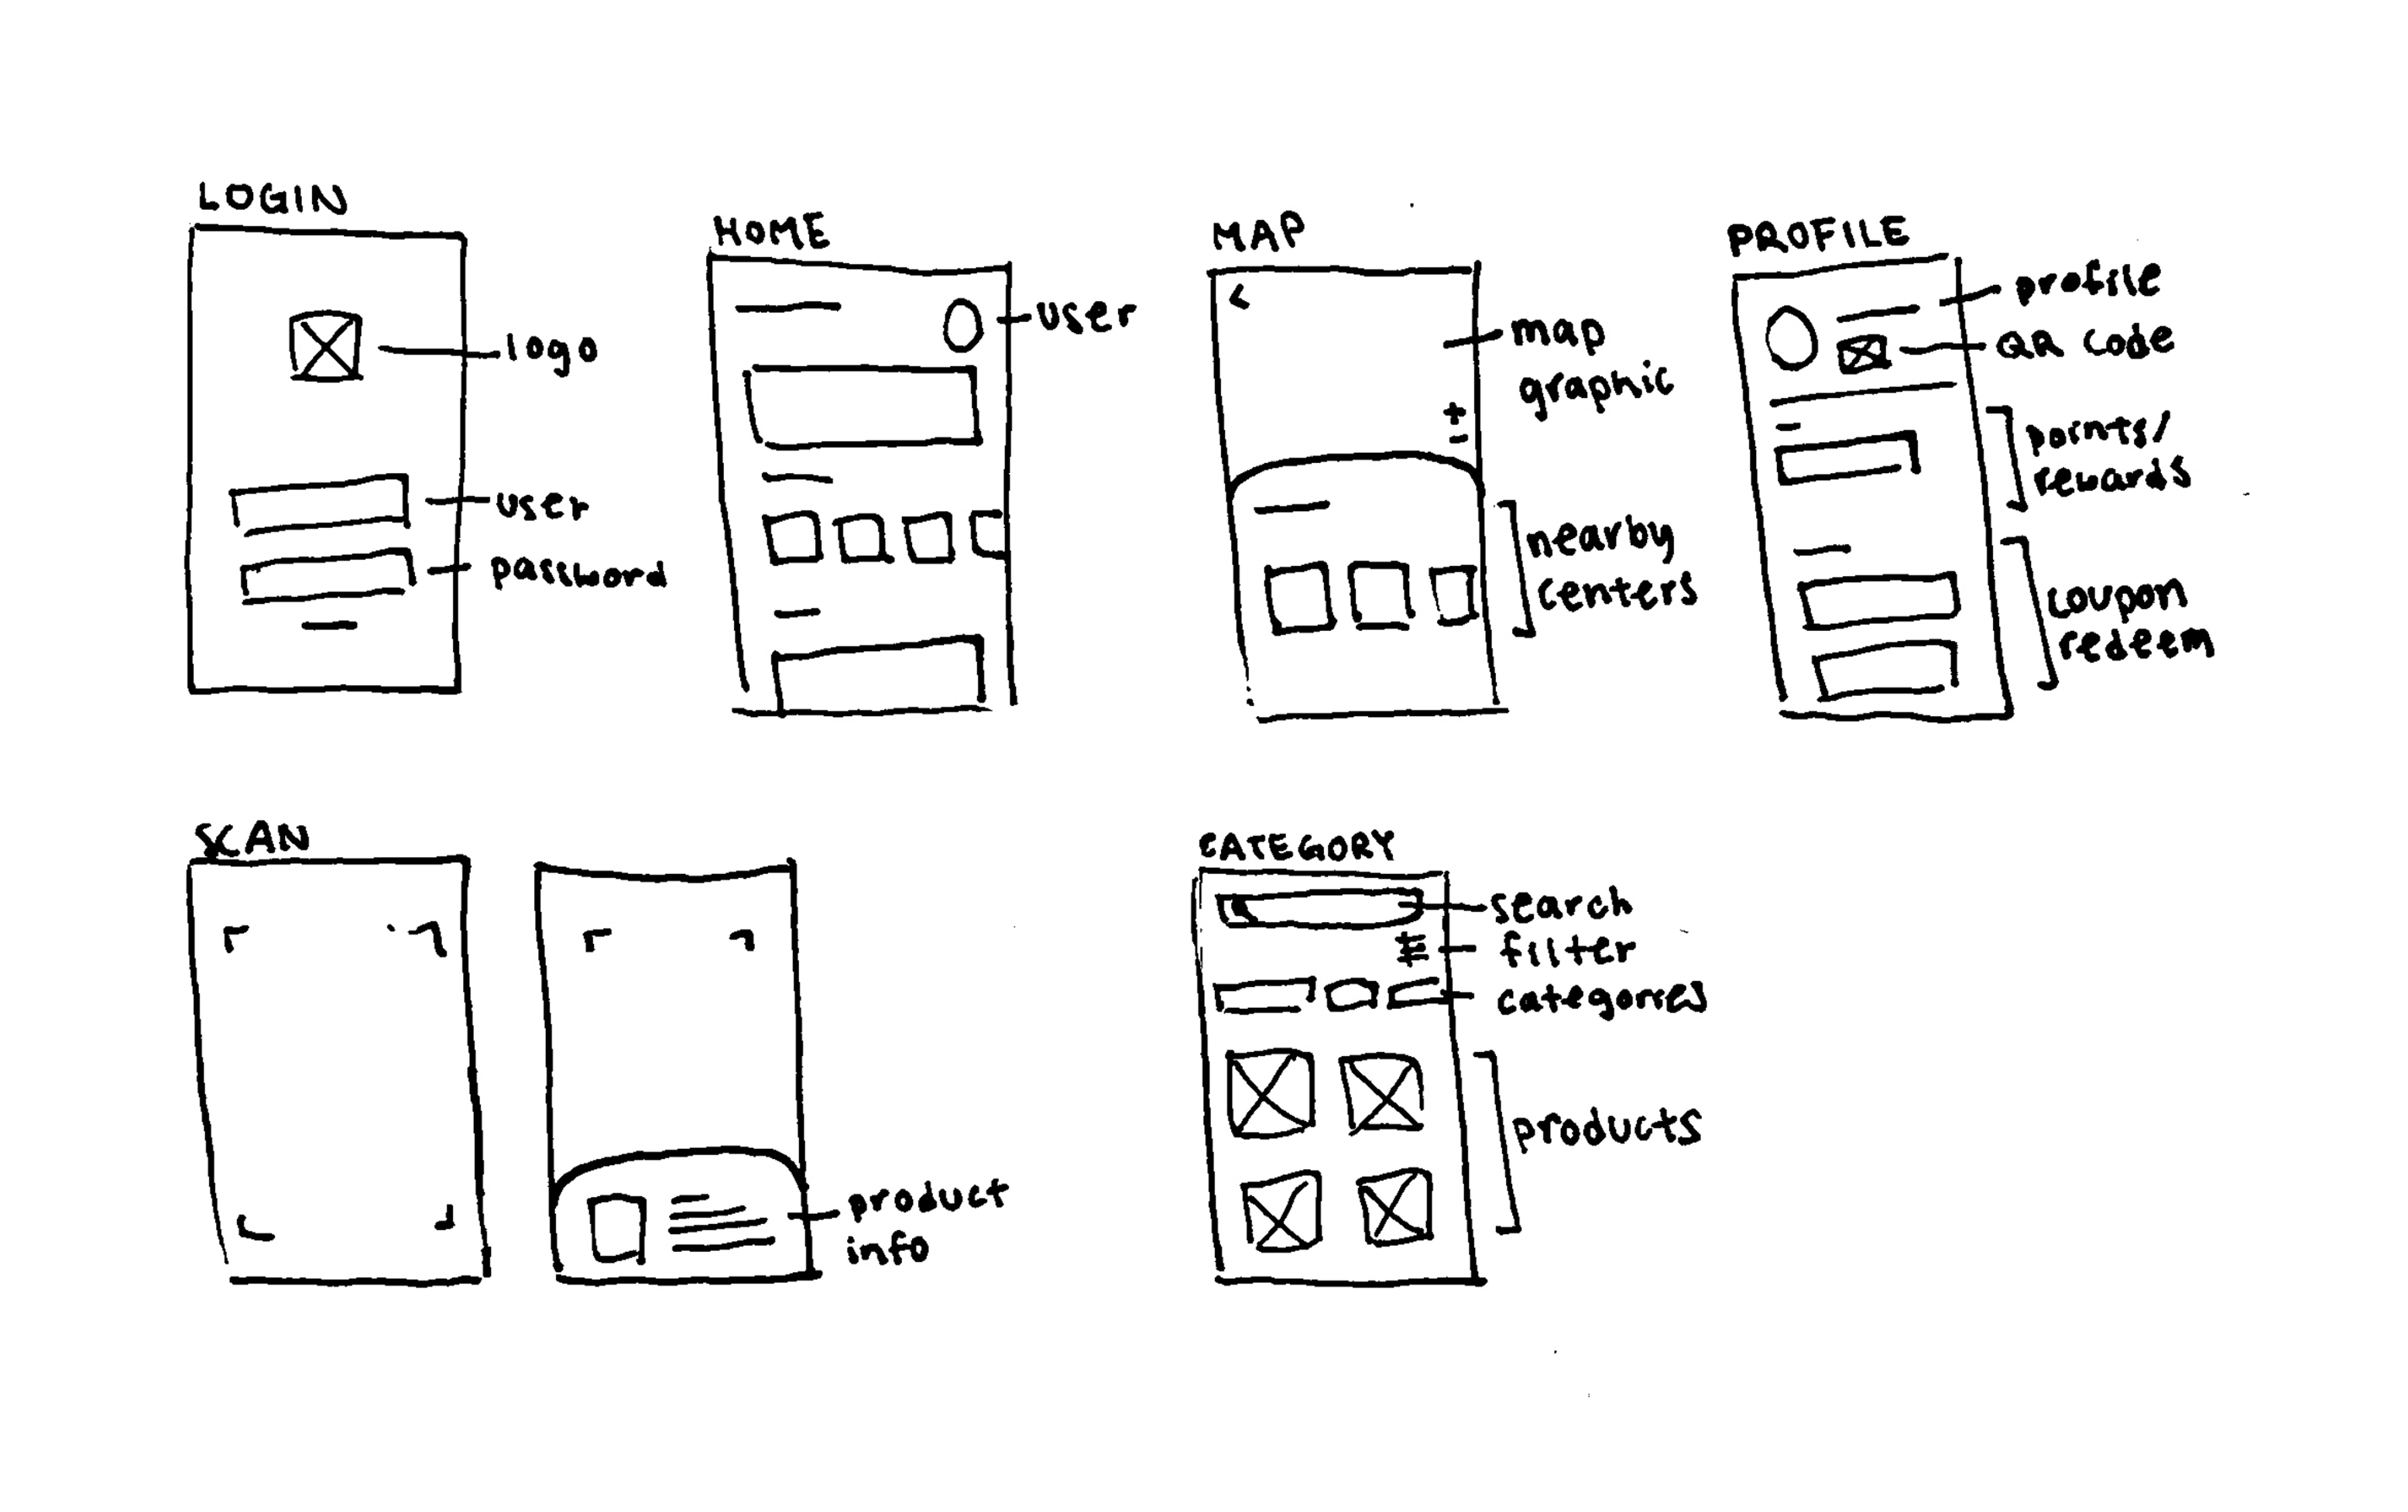 LOGIN
logo
user
password
HOME
user
MAP
map
graphic
nearby
centers
PROFILE
profile
QR code
points/
rewards
coupon
redeem
SCAN
product
info
CATEGORY
search
filter
categories
products